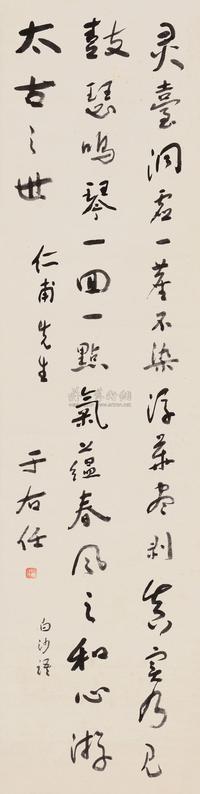 灵臺洞虚一塵不染浮華尽剥真实乃見
鼓瑟鳴琴一回一點氣蕴春風之和心游
太古之世
仁甫先生
于右任
白沙語